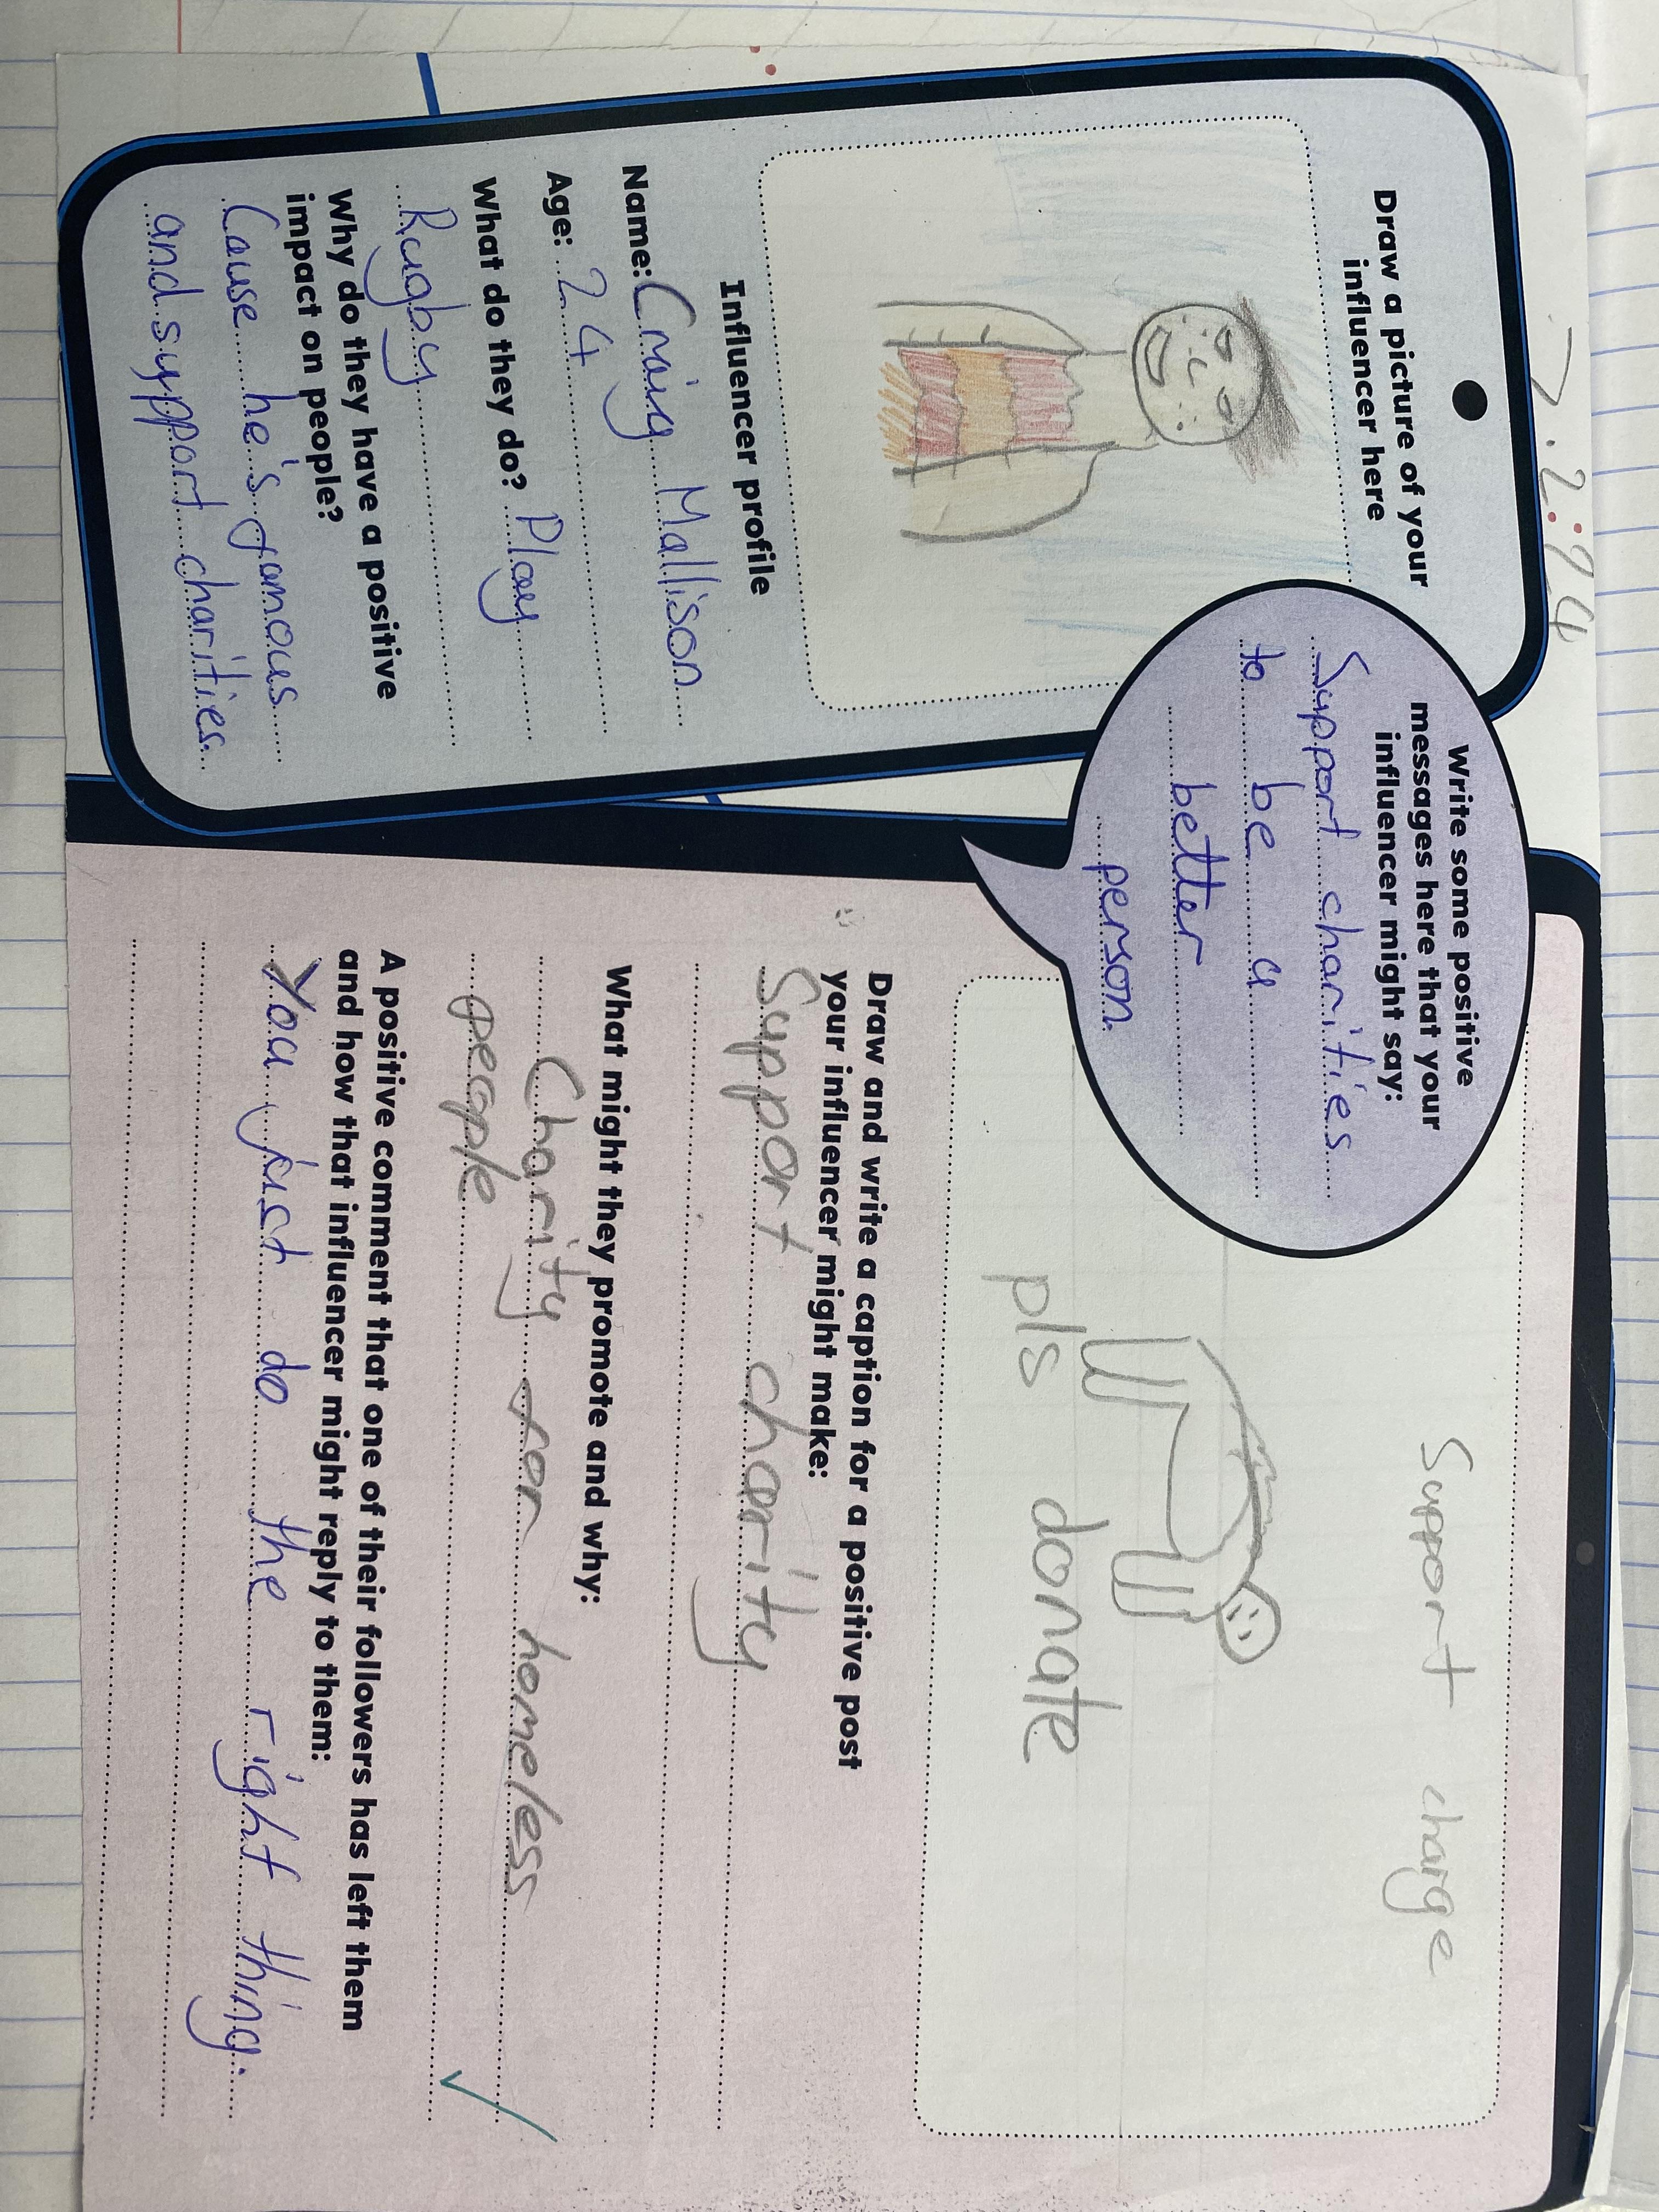 7.2.24
Draw a picture of your
influencer here
Influencer profile
Name: Craig Mallison
Age: 24
What do they do? Play
Rugby
Why do they have a positive
impact on people?
Cause he's famous
and support charities.
Write some positive
messages here that your
influencer might say:
Support charities
to be a
better
person
Support charge
pls donate
Draw and write a caption for a positive post
your influencer might make:
Support charity
What might they promote and why:
Charity for homeless
people
A positive comment that one of their followers has left them
and how that influencer might reply to them:
You just do the right thing.